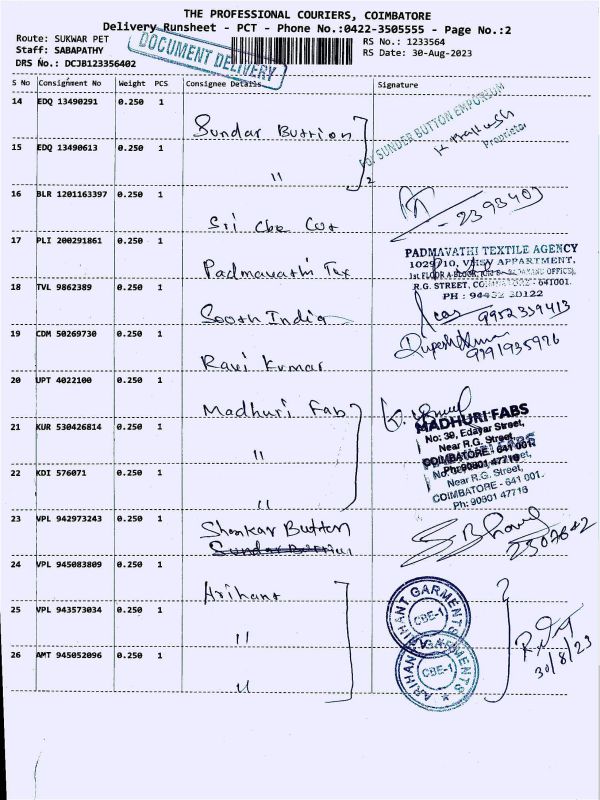 THE PROFESSIONAL COURIERS, COIMBATORE
Delivery Runsheet - PCT - Phone No.:0422-3505555 - Page No.:2
Route: SUKWAR PET
RS No.: 1233564
Staff: SABAPATHY
RS Date: 30-Aug-2023
DRS No.: DCJB123356402
DOCUMENT DELIVERY
S No Consignment No Weight PCS Consignee Details Signature
14 EDQ 13490291 0.250 1
Sundar Buttion
For SUNDER BUTTON EMPORIUM
Proprietor
15 EDQ 13490613 0.250 1
"
2
16 BLR 1201163397 0.250 1
Sri Cbe Cot
17 PLI 200291861 0.250 1
Padmavathi Tex
PADMAVATHI TEXTILE AGENCY
R.G. STREET, COIMBATORE - 641001.
18 TVL 9862389 0.250 1
South India
9952339413
19 CDM 50269730 0.250 1
Ravi Kumar
Dinesh Kumar
9791935976
20 UPT 4022100 0.250 1
Madhuri Fab
MADHURI FABS
No: 39, Edayar Street,
Near R.G. Street,
COIMBATORE - 641 001.
Ph: 90801 47716
21 KUR 530426814 0.250 1
"
22 KDI 576071 0.250 1
"
Near R.G. Street,
COIMBATORE - 641 001.
Ph: 90801 47716
23 VPL 942973243 0.250 1
Shankar Button
2307642
24 VPL 945083809 0.250 1
Arihant
ARIHANT GARMENTS
CBE-1
25 VPL 943573034 0.250 1
"
30/8/23
26 AMT 945052096 0.250 1
"
ARIHANT GARMENTS
CBE-1